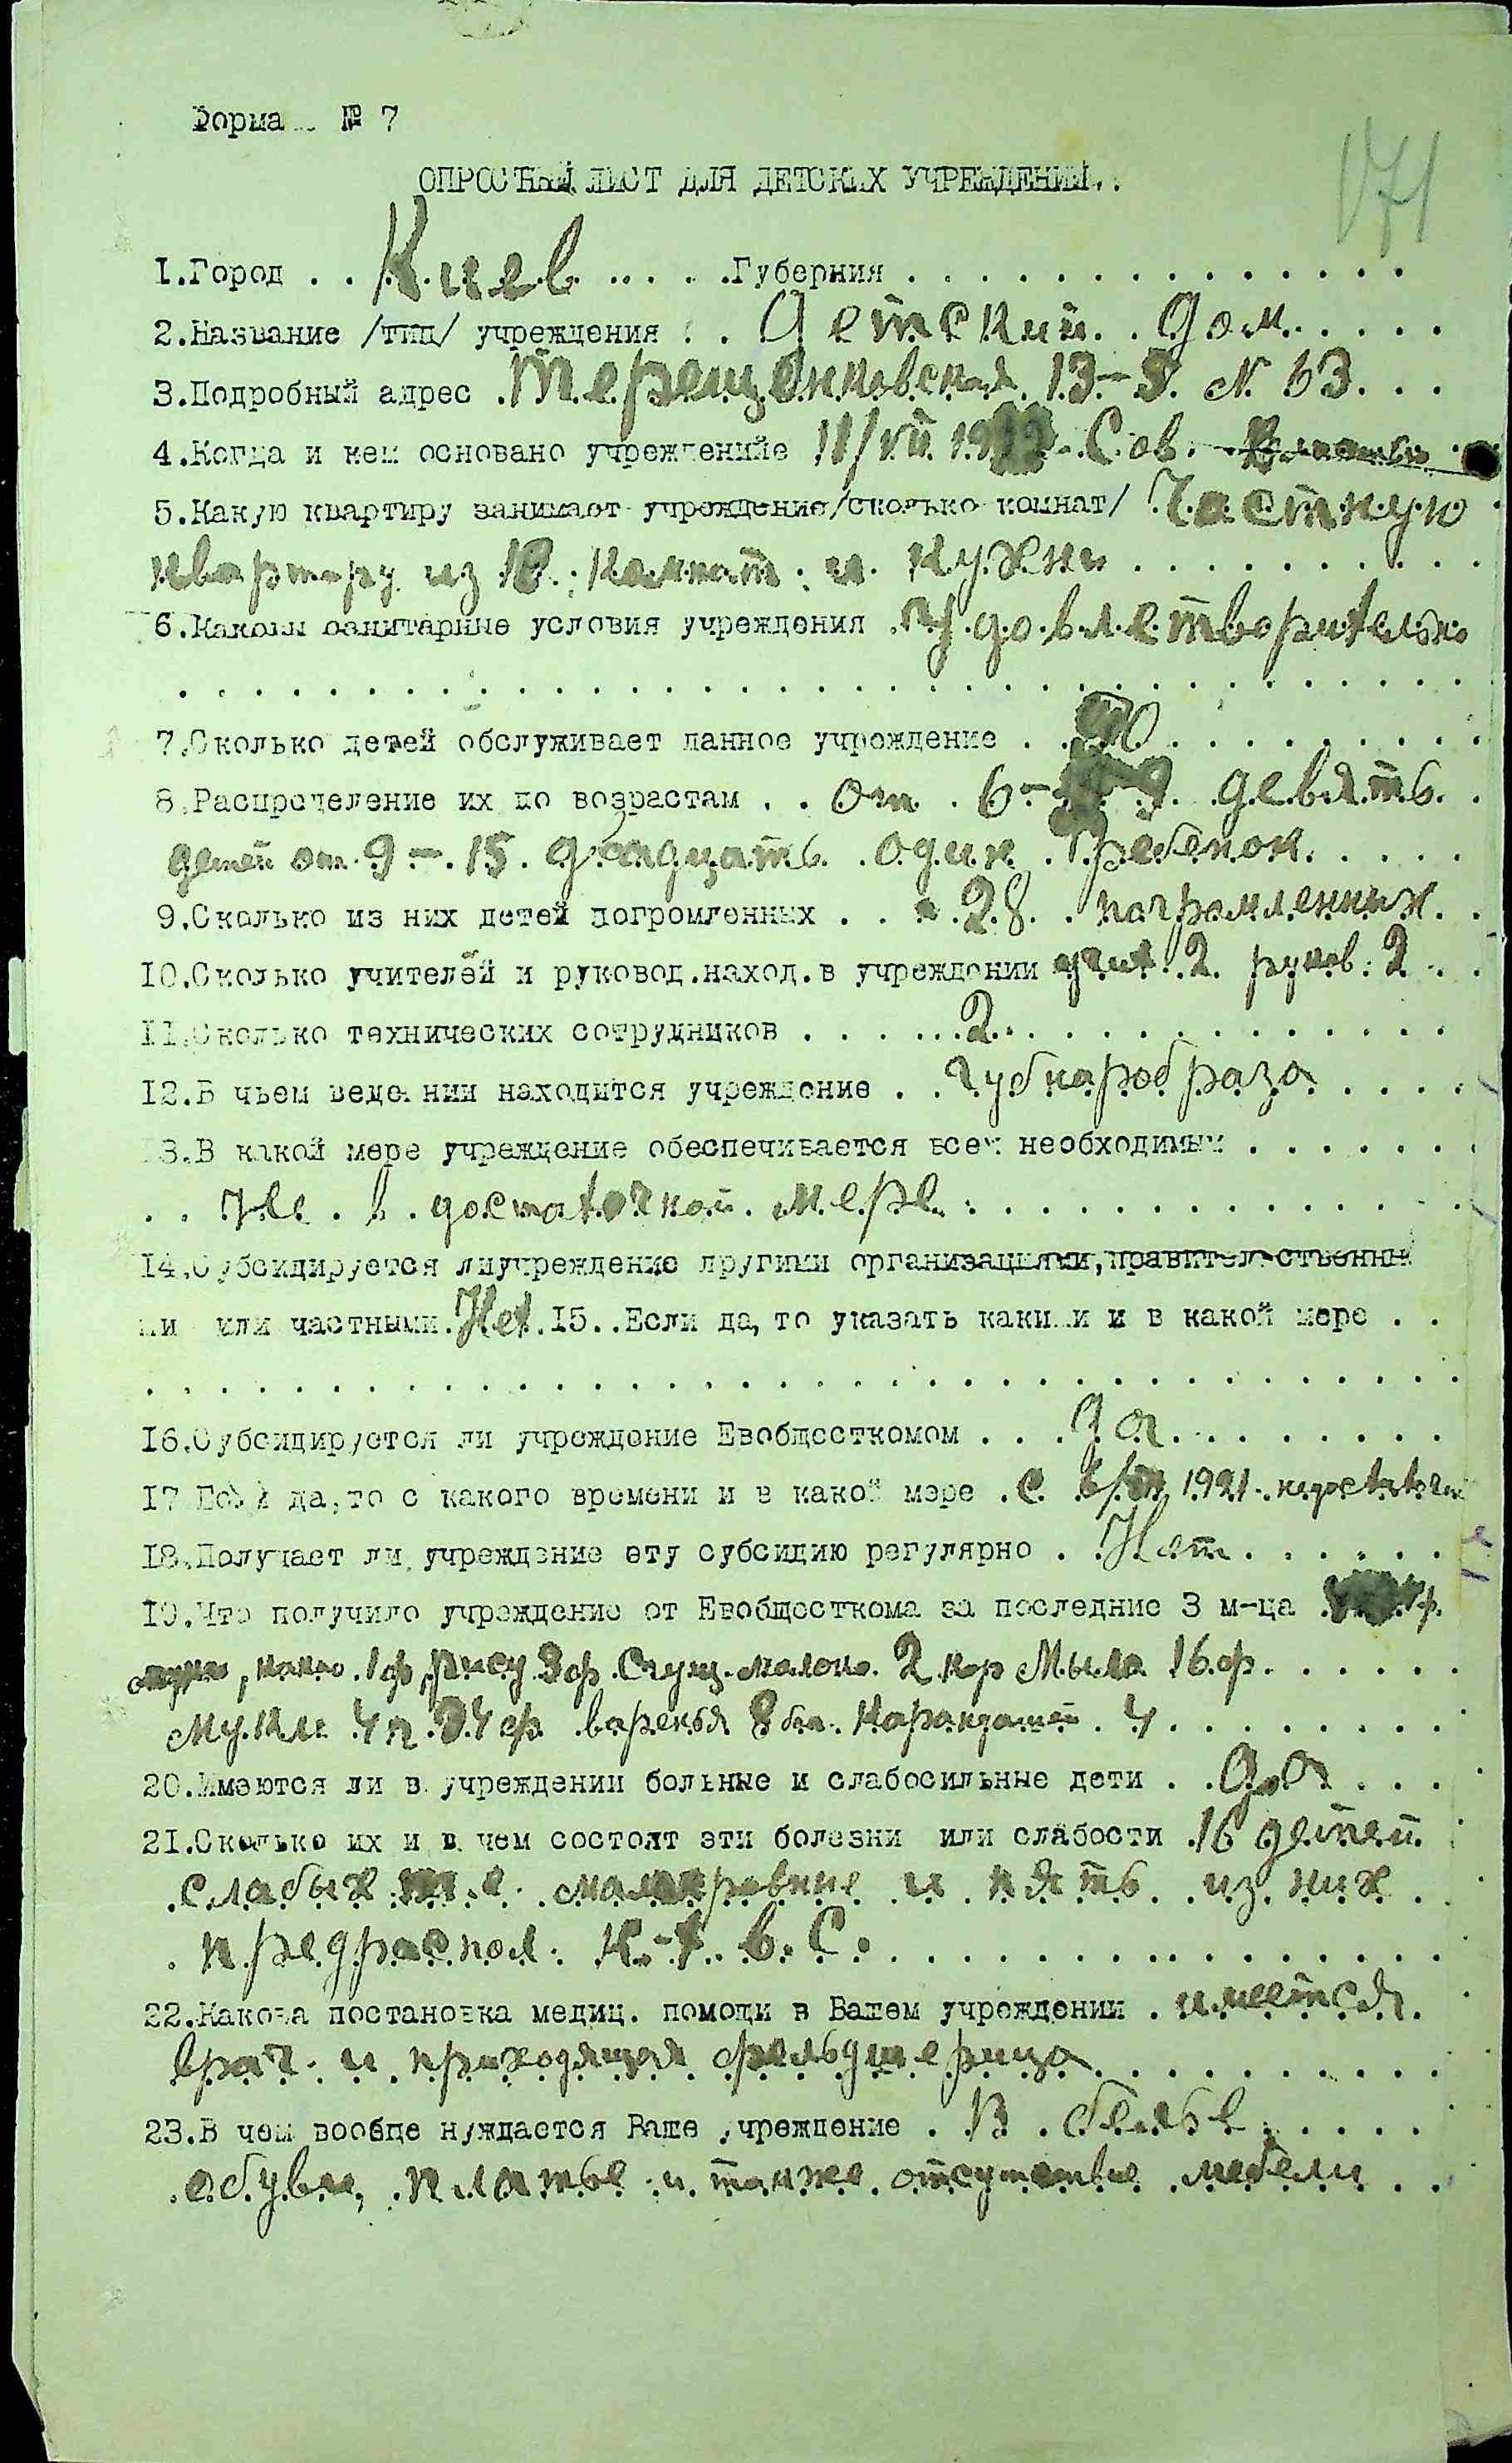 Форма № 7
171
ОПРОСНЫЙ ЛИСТ ДЛЯ ДЕТСКИХ УЧРЕЖДЕНИЙ.
1.Город . . Киев . . . . .Губерния . . . . . . . . . . . . . .
2.Название /тип/ учреждения . . Детский . Дом . . . . .
3.Подробный адрес . Терещенковская 13-5. N 63. . .
4.Когда и кем основано учреждение 11/VII 1922 - Сов.
5.Какую квартиру занимает учреждение/сколько комнат/ Частную
квартиру из комнат и кухни . . . . . . . . . .
6.Каковы санитарные условия учреждения . Удовлетворительно
7.Сколько детей обслуживает данное учреждение . . . . . . . . . .
8.Распределение их по возрастам . . от . 6- 9 девять .
детей от 9 - 15 двадцать один ребенок . . . . .
9.Сколько из них детей погромленных . . . 28 . погромленных . .
10.Сколько учителей и руковод.наход.в учреждении учит. 2. руков. 2 . .
11.Сколько технических сотрудников . . . . . . 2 . . . . . . . . . . . . .
12.В чьем ведении находится учреждение . . Губнаробраза . . . .
13.В какой мере учреждение обеспечивается всем необходимым . . . . . . .
. . Не . в . достаточной . мере . . . . . . . . . . . . . . .
14.Субсидируется лиучреждение другими организациями,правительственны
ми или частными.Нет.15..Если да, то указать какими и в какой мере . .
16.Субсидируется ли учреждение Евобщесткомом . . . Да . . . . . . . .
17 Если да,то с какого времени и в какой мере . С 1921 - недостаточн
18.Получает ли учреждение эту субсидию регулярно . Нет . . . . . .
19.Что получило учреждение от Евобщесткома за последние 3 м-ца
, какао 1 ф, рису 3 ф. Сгущ. молоко 2 кор Мыла 16 ф. . . . . .
Муки 4 п 34 ф варенья 8 бан. Карандашей . 4 . . . . . . . . .
20.Имеются ли в учреждении больные и слабосильные дети . . Да . . .
21.Сколько их и в чем состоят эти болезни или слабости 16 детей
слабых т.е. малокровные и пять из них
. предраспол. К-t. в. С. . . . . . . . . . . . . . . .
22.Какова постановка медиц. помощи в Вашем учреждении . имеется .
врач и приходящая фельдшерица . . . . . . . . . .
23.В чем вообще нуждается Ваше учреждение . В . белье . . . . .
. обуви, платье и также отсутствие мебели . .